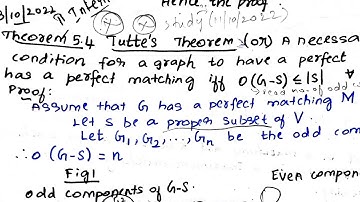 3/10/2022
II Intern
Hence the proof.
study (11/10/2022)
Theorem 5.4 Tutte's Theorem (or) A necessa
condition for a graph to have a perfect
has a perfect matching iff O(G-S) ≤ |S| ∀
read no. of odd co
Proof:
Assume that G has a perfect matching M
Let S be a proper subset of V.
Let G₁, G₂, ..., Gn be the odd com
∴ O(G-S) = n
Fig 1
odd components of G-S.
Even compon